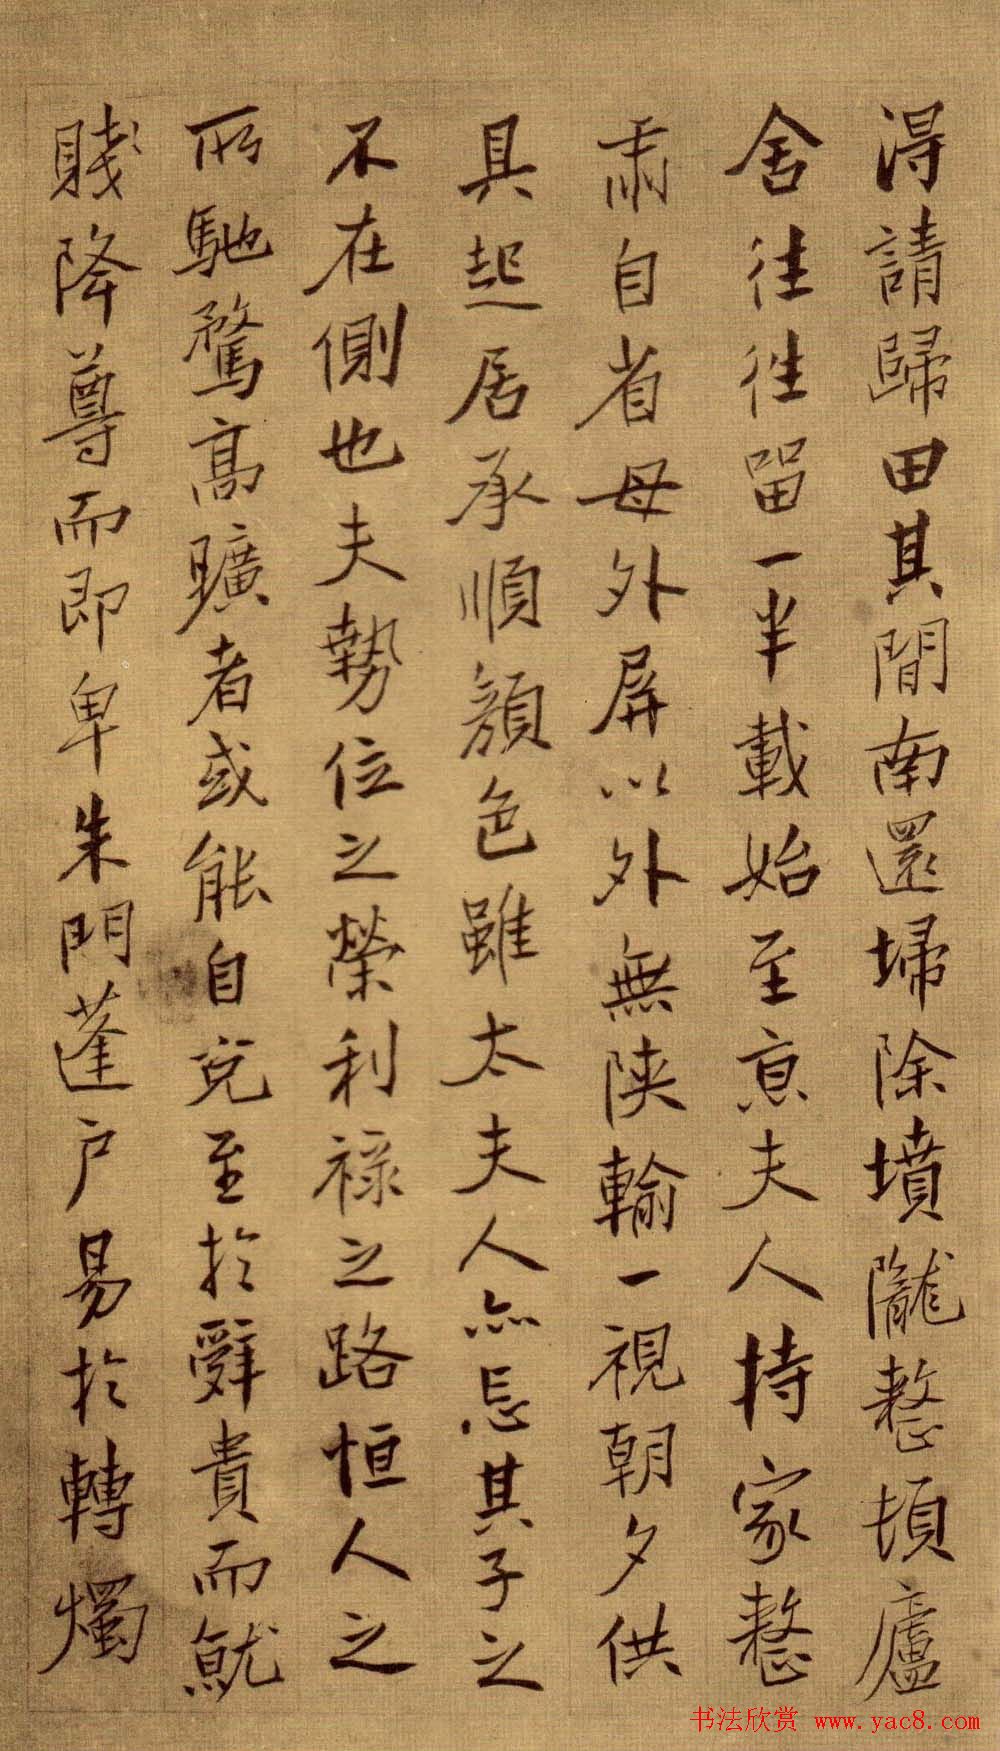 淂請歸田其間南還埽除墳隴整頓廬
舍往往留一半載始至京夫人持家整
肅自省母外屏以外無陝輸一視朝夕供
具起居承順顏色雖太夫人亦忘其子之
不在側也夫勢位之榮利祿之路恒人之
所馳騖高曠者或能自免至於辭貴而就
賤降尊而即卑朱門蓬户易於轉燭
书法欣赏 www.yac8.com